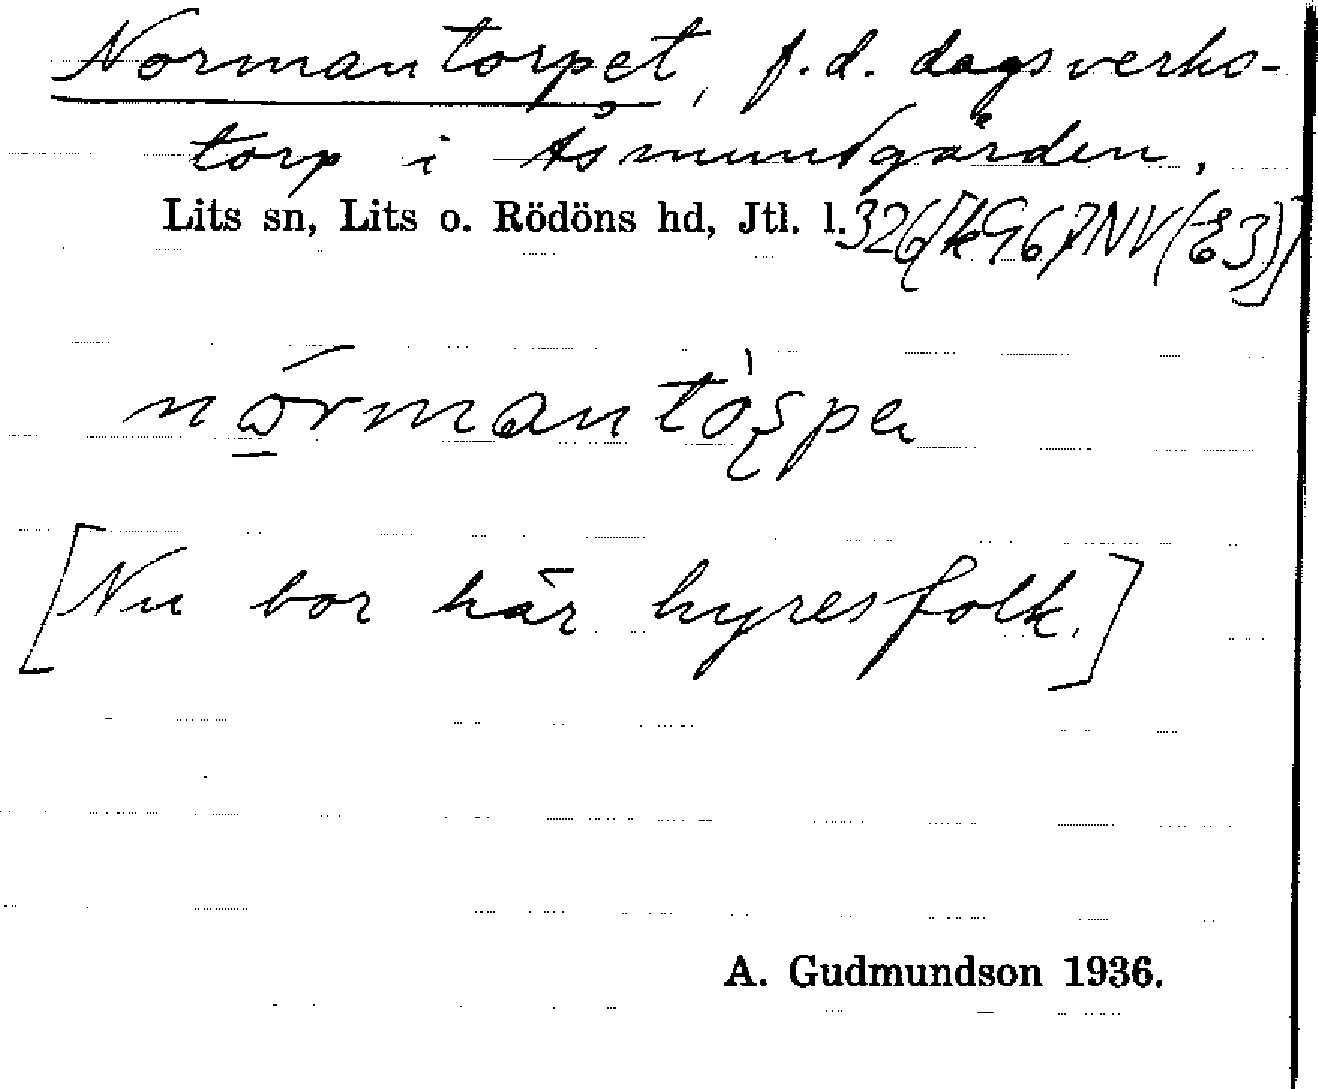 Normantorpet, f.d. dagsverks-
torp i Åsmundgården.
Lits sn, Lits o. Rödöns hd, Jtl. l. 326 [k967NV(E3)]
[Nu bor här hyresfolk.]
A. Gudmundson 1936.